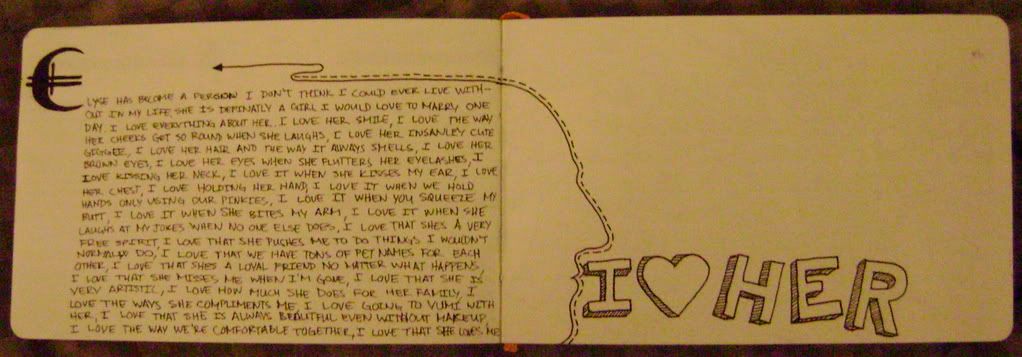 ELYSE HAS BECOME A PERSON I DON'T THINK I COULD EVER LIVE WITH-
OUT IN MY LIFE, SHE IS DEFINATLY A GIRL I WOULD LOVE TO MARRY ONE
DAY. I LOVE EVERYTHING ABOUT HER. I LOVE HER SMILE, I LOVE THE WAY
HER CHEEKS GET SO ROUND WHEN SHE LAUGHS, I LOVE HER INSANLEY CUTE
GIGGLE, I LOVE HER HAIR AND THE WAY IT ALWAYS SMELLS, I LOVE HER
BROWN EYES, I LOVE HER EYES WHEN SHE FLUTTERS HER EYELASHES, I
LOVE KISSING HER NECK, I LOVE IT WHEN SHE KISSES MY EAR, I LOVE
HER CHEST, I LOVE HOLDING HER HAND, I LOVE IT WHEN WE HOLD
HANDS ONLY USING OUR PINKIES, I LOVE IT WHEN YOU SQUEEZE MY
BUTT, I LOVE IT WHEN SHE BITES MY ARM, I LOVE IT WHEN SHE
LAUGHS AT MY JOKES WHEN NO ONE ELSE DOES, I LOVE THAT SHES A VERY
FREE SPIRIT I LOVE THAT SHE PUSHES ME TO DO THINGS I WOULDN'T
NORMALLY DO, I LOVE THAT WE HAVE TONS OF PET NAMES FOR EACH
OTHER, I LOVE THAT SHES A LOYAL FRIEND NO MATTER WHAT HAPPENS,
I LOVE THAT SHE MISSES ME WHEN I'M GONE, I LOVE THAT SHE IS
VERY ARTISTIC, I LOVE HOW MUCH SHE DOES FOR HER FAMILY, I
LOVE THE WAYS SHE COMPLIMENTS ME, I LOVE GOING TO YUMI WITH
HER, I LOVE THAT SHE IS ALWAYS BEAUTIFUL EVEN WITHOUT MAKEUP,
I LOVE THE WAY WE'RE COMFORTABLE TOGETHER, I LOVE THAT SHE LOVES ME
I ♥ HER